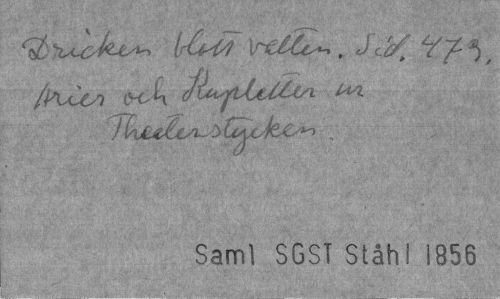 Dricken blott vatten. Sid. 473.
Arier och Kupletter ur
Theaterstycken.
Saml SGST Ståhl 1856